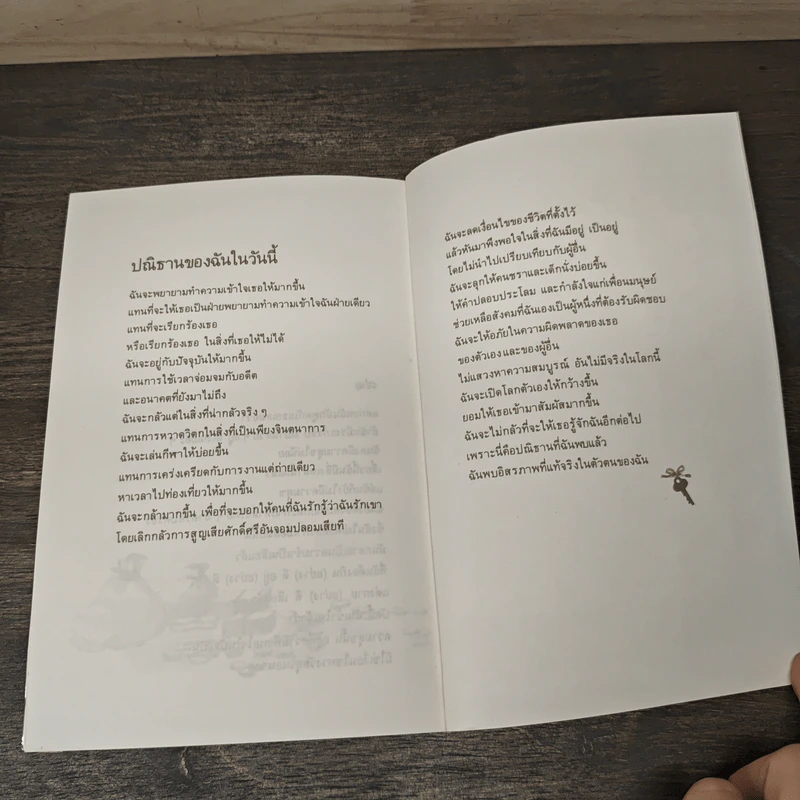 ปณิธานของฉันในวันนี้
ฉันจะพยายามทำความเข้าใจเธอให้มากขึ้น
แทนที่จะให้เธอเป็นฝ่ายพยายามทำความเข้าใจฉันฝ่ายเดียว
แทนที่จะเรียกร้องเธอ
หรือเรียกร้องเธอ ในสิ่งที่เธอให้ไม่ได้
ฉันจะอยู่กับปัจจุบันให้มากขึ้น
แทนการใช้เวลาจ่อมจมกับอดีต
และอนาคตที่ยังมาไม่ถึง
ฉันจะกลัวแต่ในสิ่งที่น่ากลัวจริง ๆ
แทนการหวาดวิตกในสิ่งที่เป็นเพียงจินตนาการ
ฉันจะเล่นกีฬาให้บ่อยขึ้น
แทนการเคร่งเครียดกับการงานแต่ถ่ายเดียว
หาเวลาไปท่องเที่ยวให้มากขึ้น
ฉันจะกล้ามากขึ้น เพื่อที่จะบอกให้คนที่ฉันรักรู้ว่าฉันรักเขา
โดยเลิกกลัวการสูญเสียศักดิ์ศรีอันจอมปลอมเสียที
ฉันจะลดเงื่อนไขของชีวิตที่ตั้งไว้
แล้วหันมาพึงพอใจในสิ่งที่ฉันมีอยู่ เป็นอยู่
โดยไม่นำไปเปรียบเทียบกับผู้อื่น
ฉันจะลุกให้คนชราและเด็กนั่งบ่อยขึ้น
ให้คำปลอบประโลม และกำลังใจแก่เพื่อนมนุษย์
ช่วยเหลือสังคมที่ฉันเองเป็นผู้หนึ่งที่ต้องรับผิดชอบ
ฉันจะให้อภัยในความผิดพลาดของเธอ
ของตัวเองและของผู้อื่น
ไม่แสวงหาความสมบูรณ์ อันไม่มีจริงในโลกนี้
ฉันจะเปิดโลกตัวเองให้กว้างขึ้น
ยอมให้เธอเข้ามาสัมผัสมากขึ้น
ฉันจะไม่กลัวที่จะให้เธอรู้จักฉันอีกต่อไป
เพราะนี่คือปณิธานที่ฉันพบแล้ว
ฉันพบอิสรภาพที่แท้จริงในตัวตนของฉัน